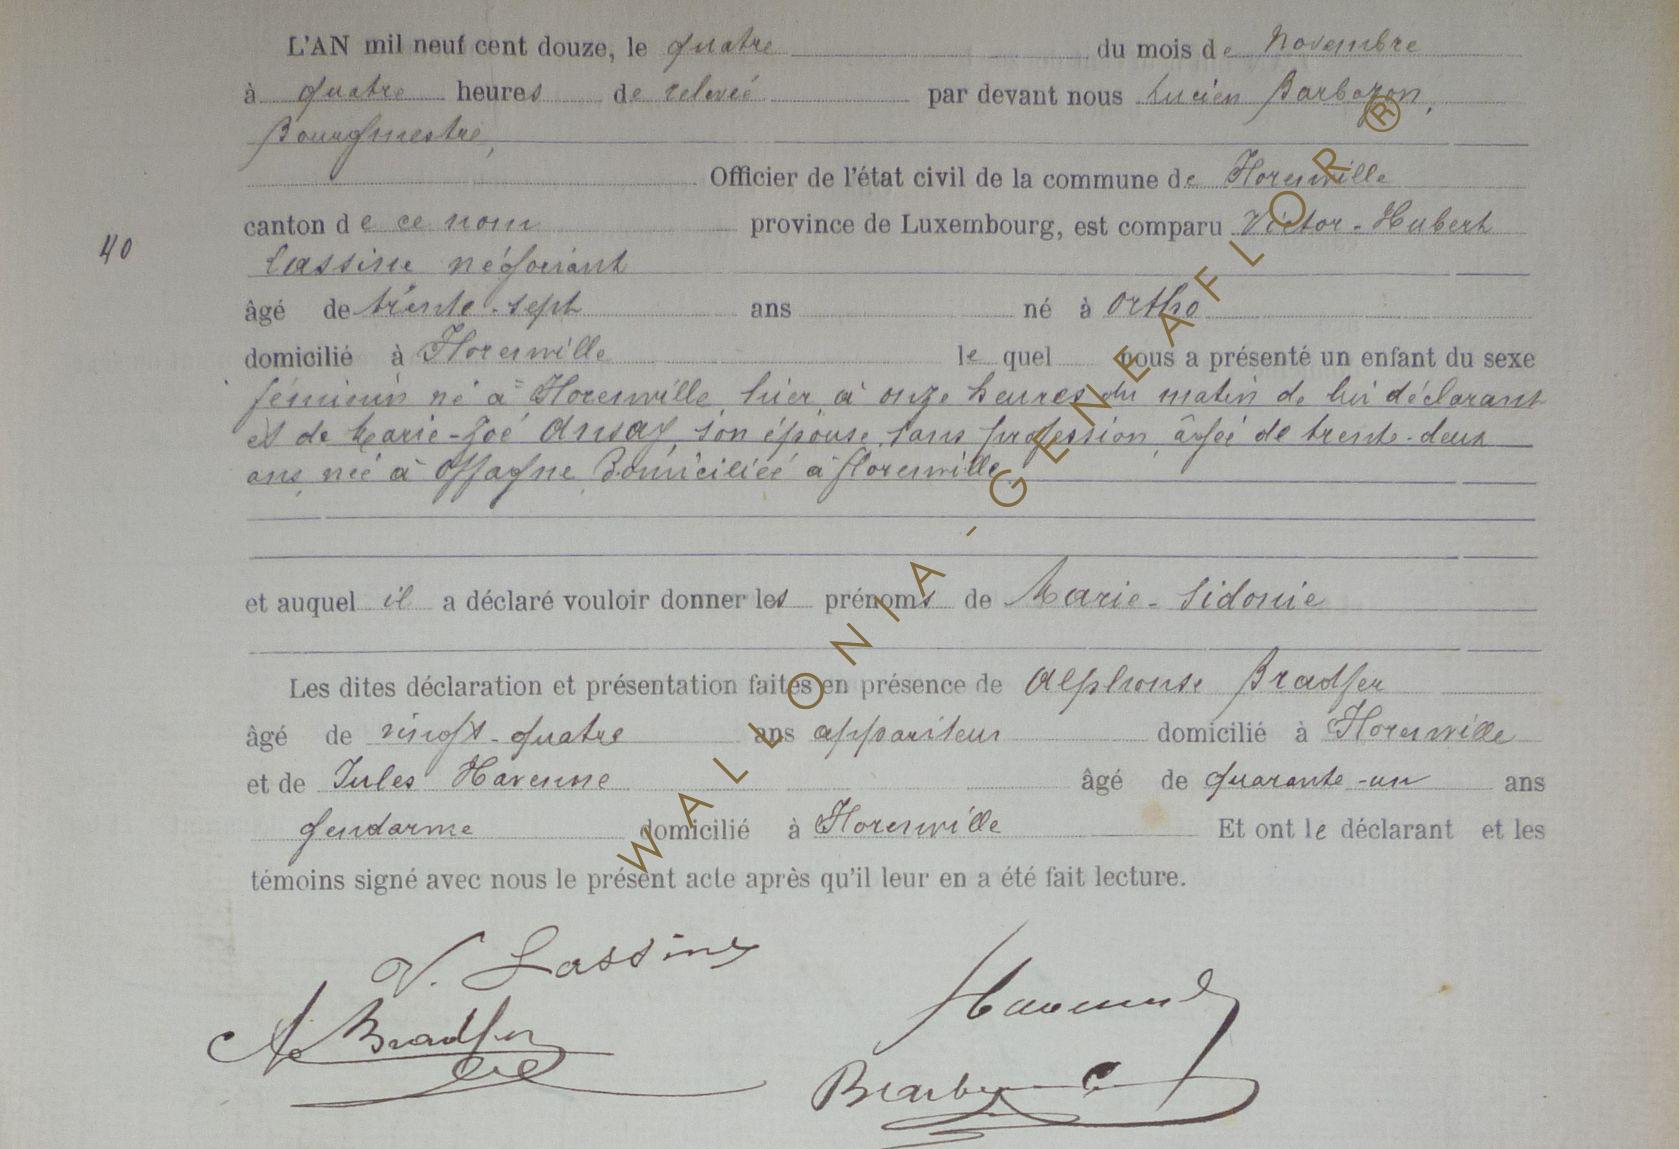 L'AN mil neuf cent douze, le quatre du mois de Novembre
à quatre heures de relevée par devant nous Lucien Barbazon,
Bourgmestre,
Officier de l'état civil de la commune de Florenville
canton de ce nom province de Luxembourg, est comparu Victor-Hubert
40
Lassine négociant
âgé de trente-sept ans né à Ortho
domicilié à Florenville lequel nous a présenté un enfant du sexe
féminin né à Florenville, hier, à onze heures du matin de lui déclarant
et de Marie-Zoé Ansay, son épouse, sans profession, âgée de trente-deux
ans, née à Offagne, domiciliée à Florenville
et auquel il a déclaré vouloir donner les prénoms de Marie-Sidonie
Les dites déclaration et présentation faites en présence de Alphonse Bradfer
âgé de vingt-quatre ans appariteur domicilié à Florenville
et de Jules Havenne âgé de quarante-un ans
gendarme domicilié à Florenville Et ont le déclarant et les
témoins signé avec nous le présent acte après qu'il leur en a été fait lecture.
V. Lassine
A Bradfer
Havenne
WALLONIA-GENEAFLOR®